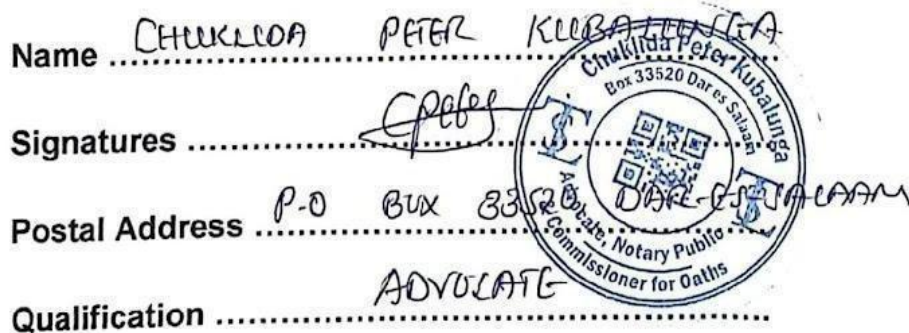 Name CHUKLIDA PETER KUBALUNGA
Signatures
Postal Address P.O BOX 33520 DAR-ES-SALAAM
Qualification ADVOCATE
Chuklida Peter Kubalunga
Box 33520 Dar es Salaam
Advocate, Notary Public
Commissioner for Oaths